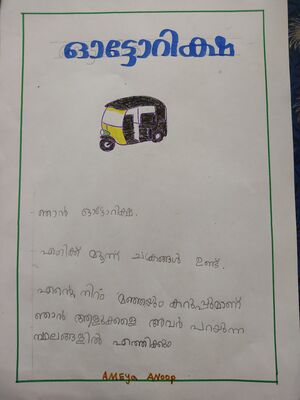 ഓട്ടോറിക്ഷ
ഞാൻ ഓട്ടോറിക്ഷ.
എനിക്ക് മൂന്ന് ചക്രങ്ങൾ ഉണ്ട്.
എന്റെ നിറം മഞ്ഞയും കറുപ്പുമാണ്
ഞാൻ ആളുകളെ അവർ പറയുന്ന
സ്ഥലങ്ങളിൽ എത്തിക്കും
AMEYA ANOOP